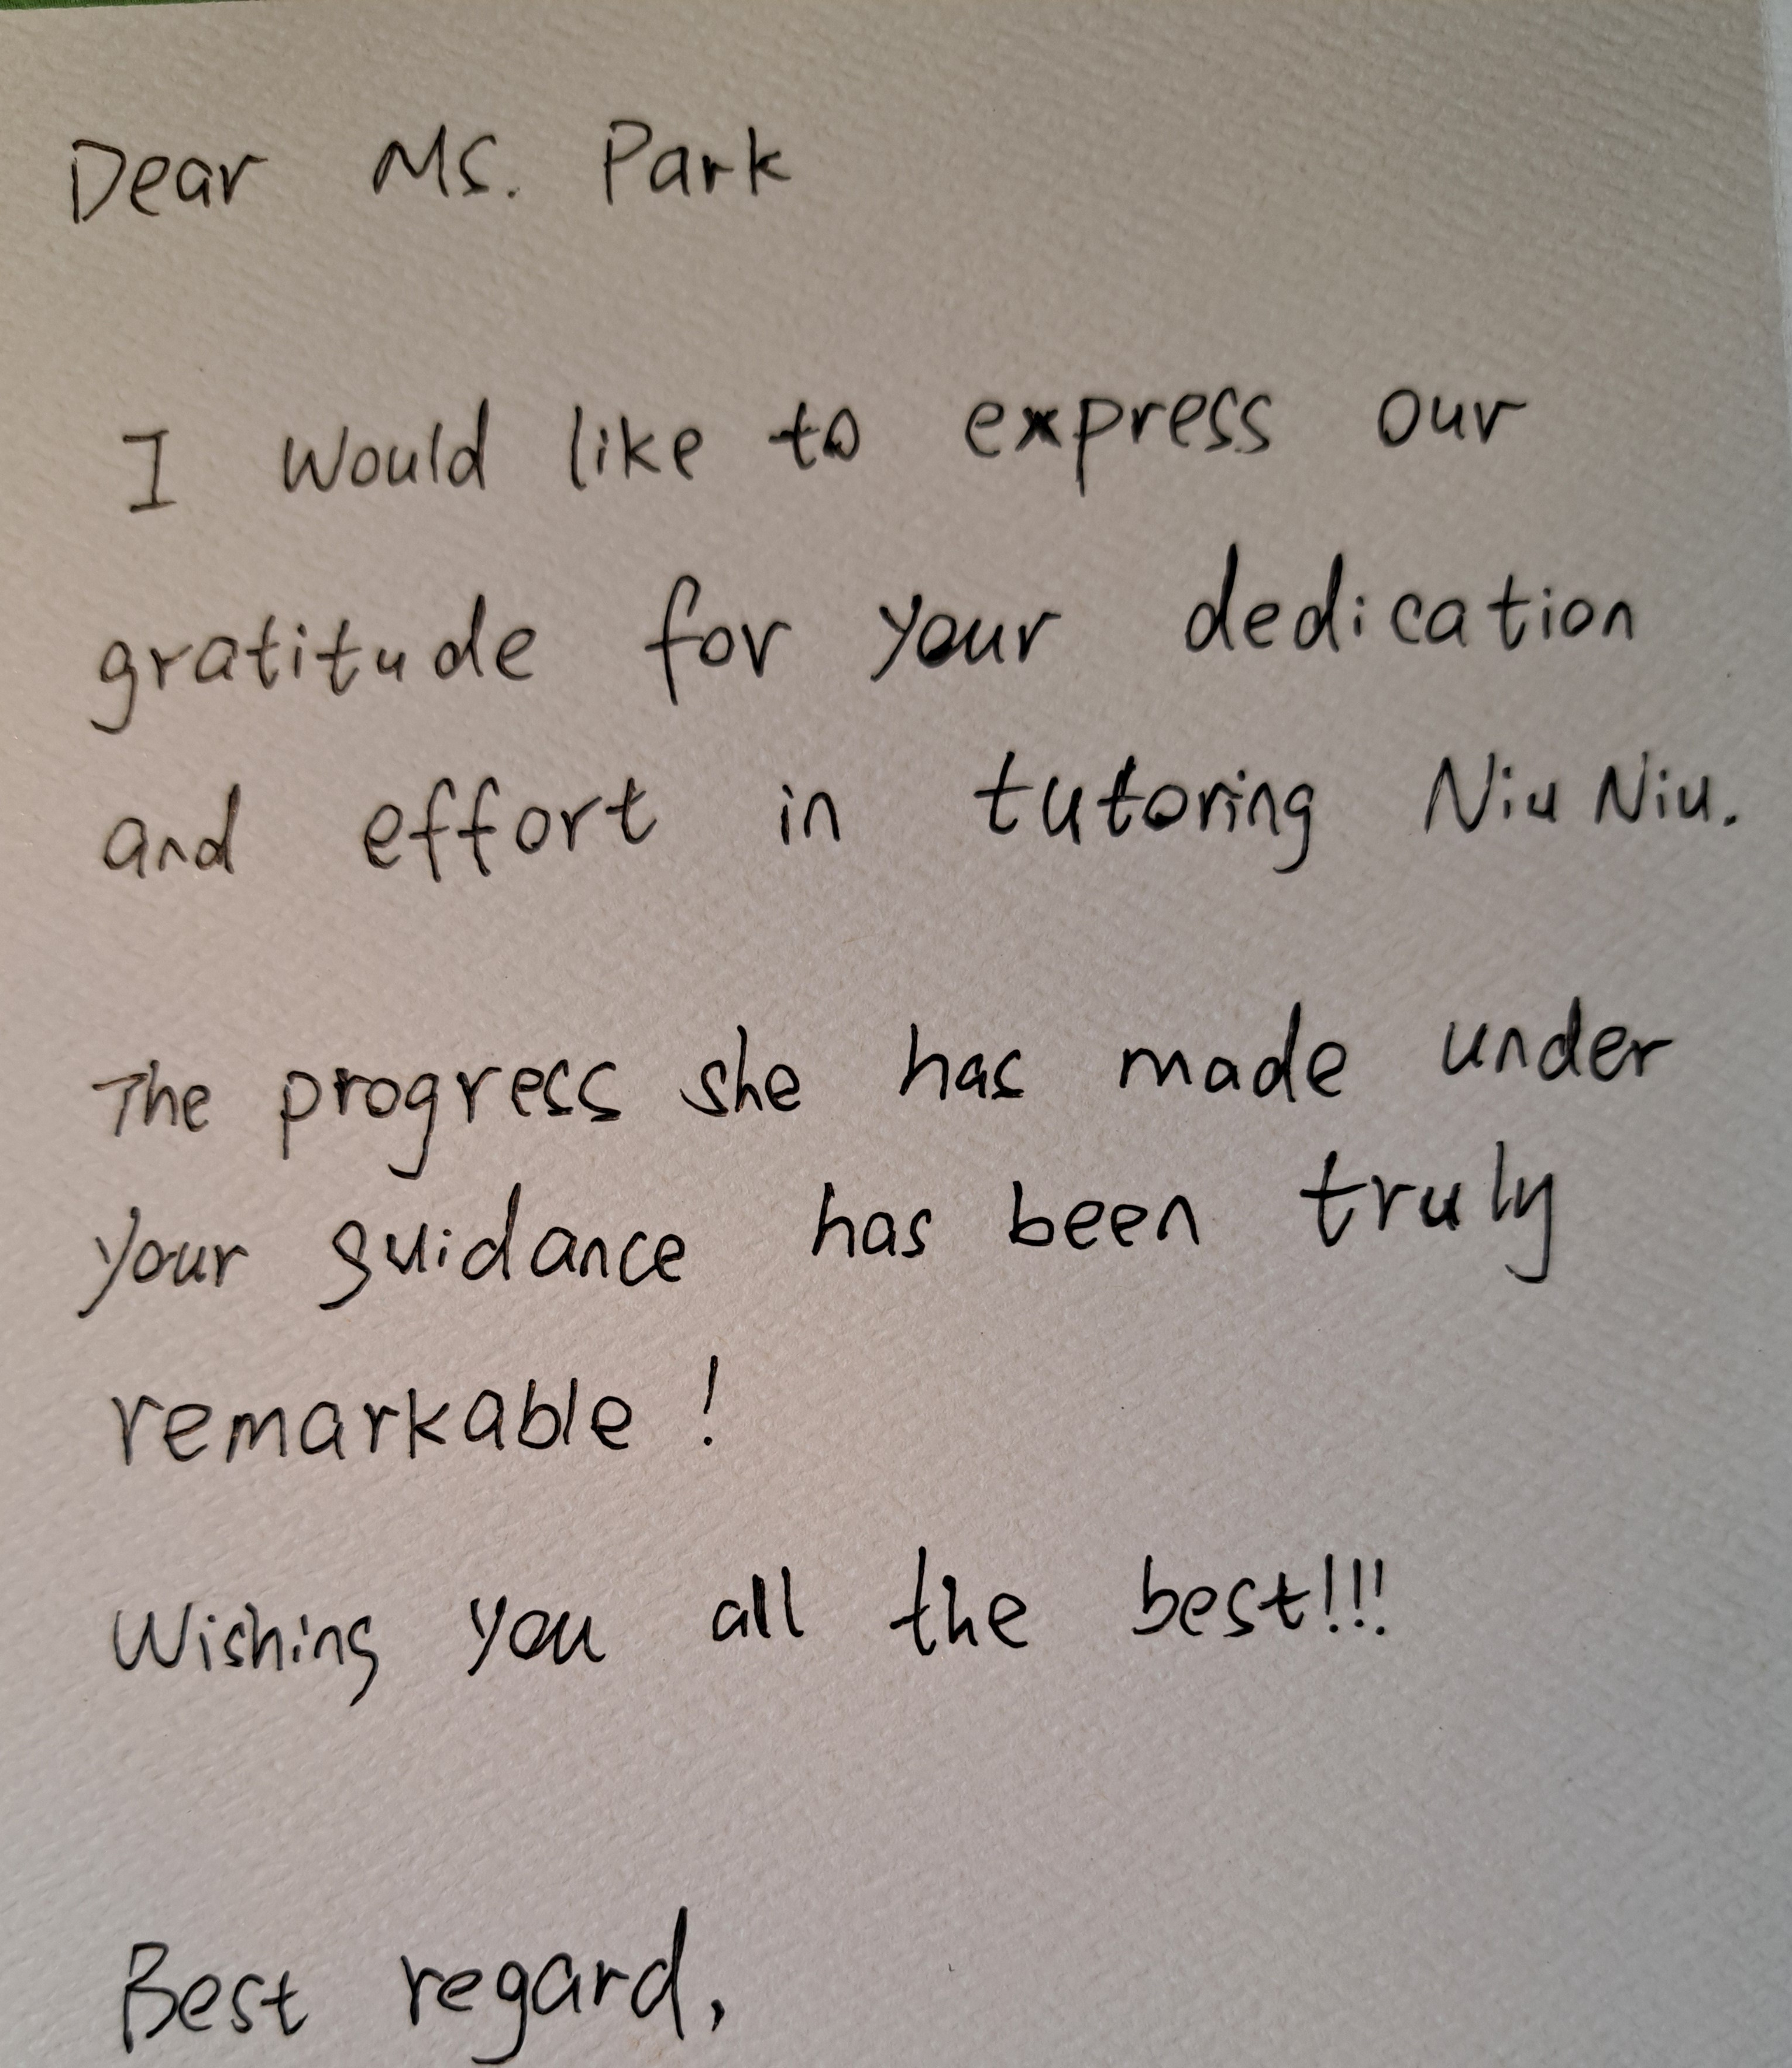 Dear Ms. Park
I would like to express our
gratitude for your dedication
and effort in tutoring Niu Niu.
The progress she has made under
your guidance has been truly
remarkable !
Wishing you all the best!!!
Best regard,